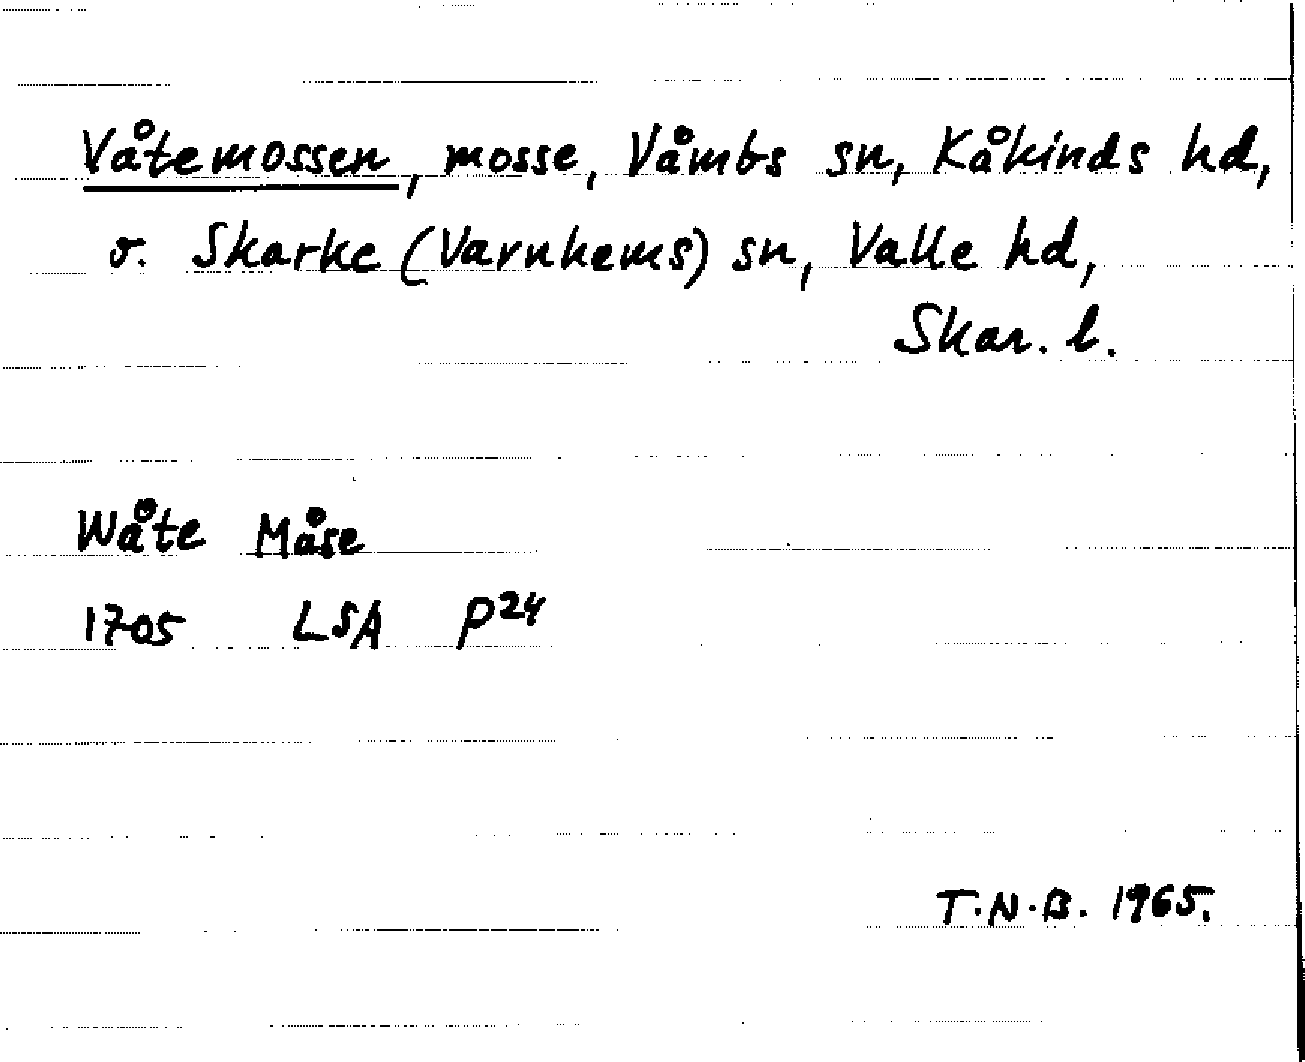 Våtemossen, mosse, Våmbs sn, Kåkinds hd,
o. Skarke (Varnhems) sn, Valle hd,
Skar. l.
Wåte Måse
1705 LSA P24
T.N.B. 1965.